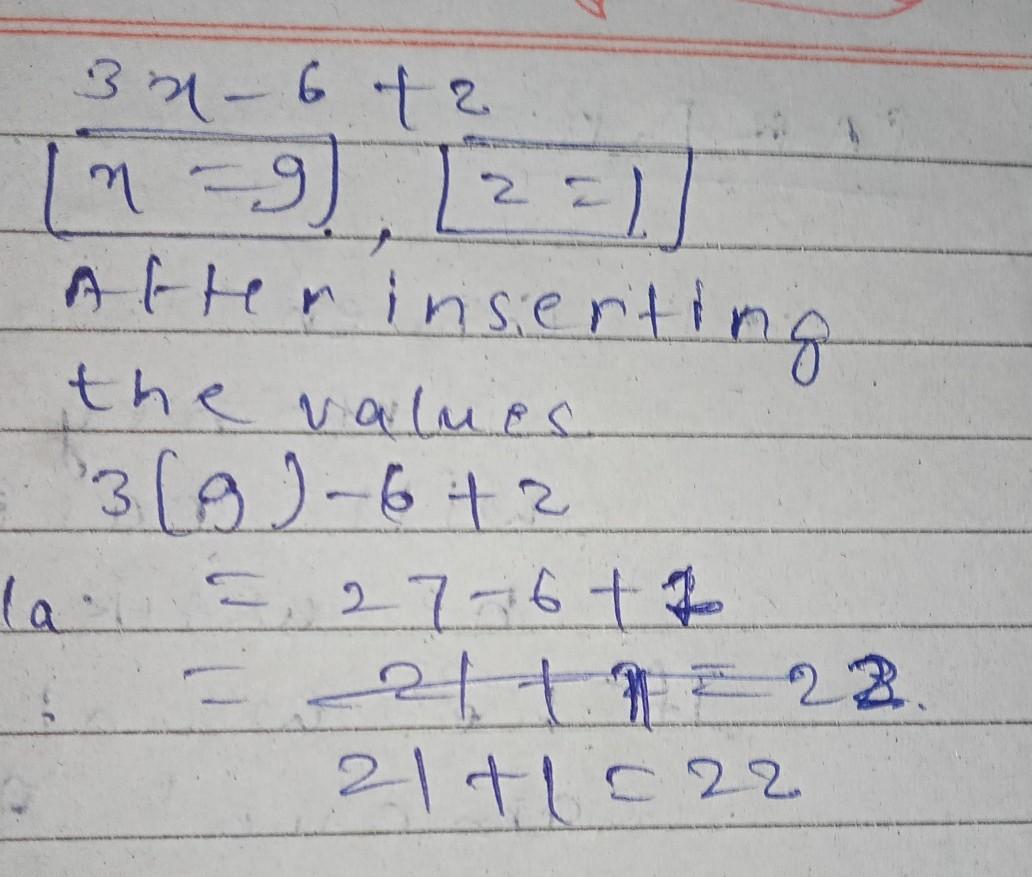 3x - 6 + z
[x = 9], [z = 1]
After inserting
the values
3(9) - 6 + z
= 27 - 6 + 1
= 21 + 1 = 22.
21 + 1 = 22